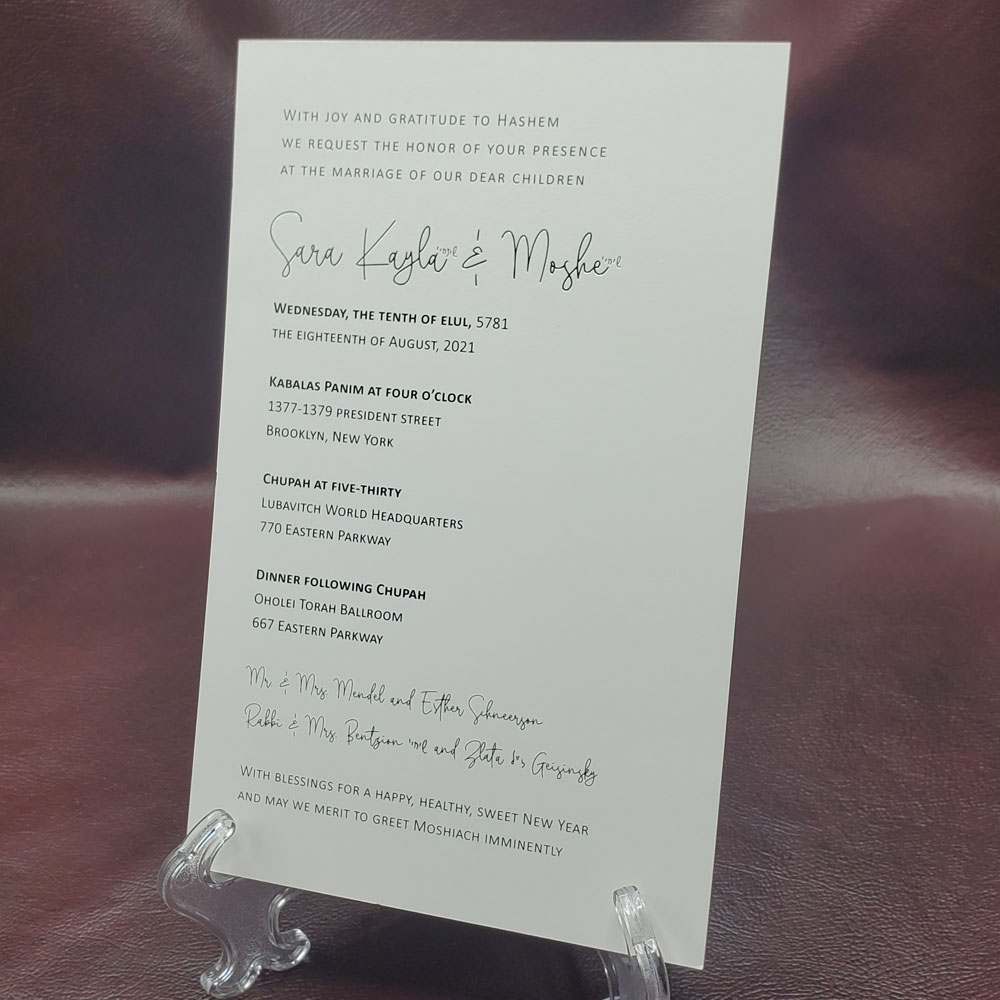 With joy and gratitude to Hashem
we request the honor of your presence
at the marriage of our dear children
Sara Kayla שתחי' & Moshe שיחי'
Wednesday, the tenth of Elul, 5781
the eighteenth of August, 2021
Kabalas Panim at four o’clock
1377-1379 President Street
Brooklyn, New York
Chupah at five-thirty
Lubavitch World Headquarters
770 Eastern Parkway
Dinner following Chupah
Oholei Torah Ballroom
667 Eastern Parkway
Mr. & Mrs. Mendel and Esther Schneerson
Rabbi & Mrs. Bentzion and Zlata Geisinsky
With blessings for a happy, healthy, sweet New Year
and may we merit to greet Moshiach imminently